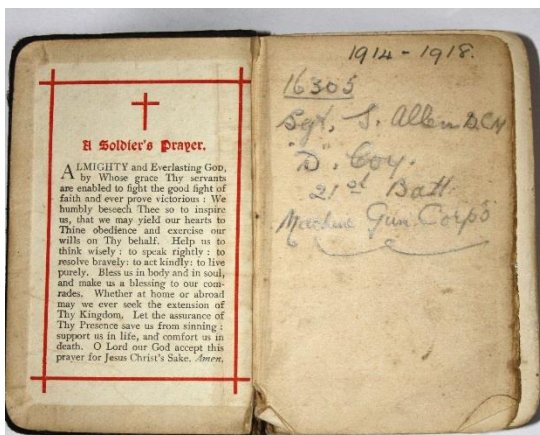 A Soldier's Prayer.
ALMIGHTY and Everlasting GOD,
by Whose grace Thy servants
are enabled to fight the good fight of
faith and ever prove victorious : We
humbly beseech Thee so to inspire
us, that we may yield our hearts to
Thine obedience and exercise our
wills on Thy behalf. Help us to
think wisely : to speak rightly : to
resolve bravely : to act kindly : to live
purely. Bless us in body and in soul,
and make us a blessing to our com-
rades. Whether at home or abroad
may we ever seek the extension of
Thy Kingdom. Let the assurance of
Thy Presence save us from sinning :
support us in life, and comfort us in
death. O Lord our God accept this
prayer for Jesus Christ's Sake. Amen.
1914 - 1918.
16305
Sgt. S. Allen D.C.M
"D" Coy.
21st Batt.
Machine Gun Corps